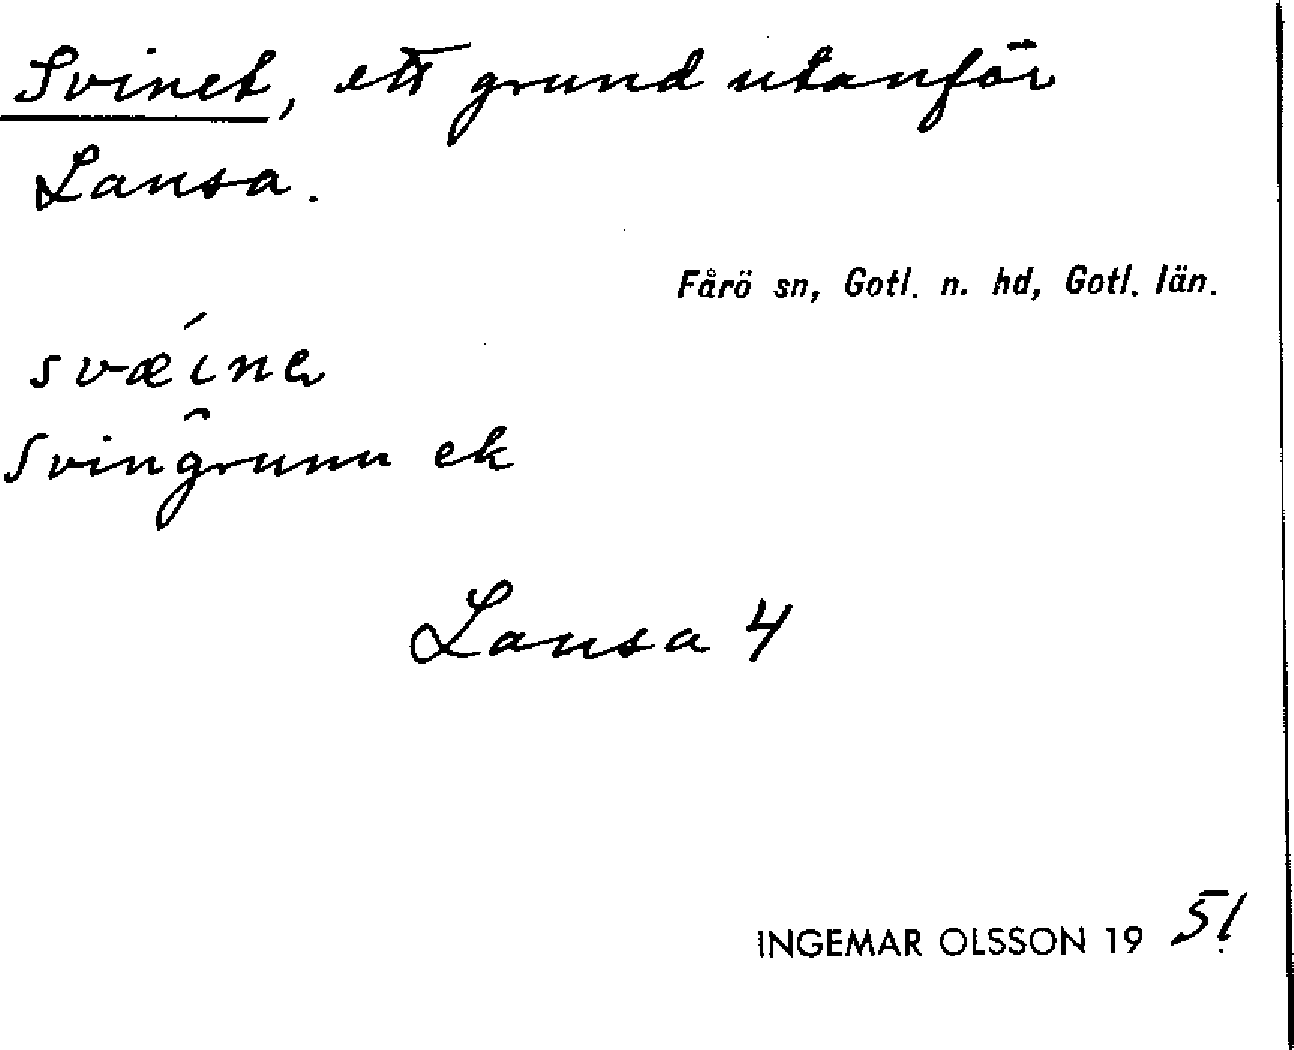 Svinet, ett grund utanför
Lansa.
Fårö sn, Gotl. n. hd, Gotl. län.
svǽine
Svingrunn ek
Lansa 4
INGEMAR OLSSON 19 51